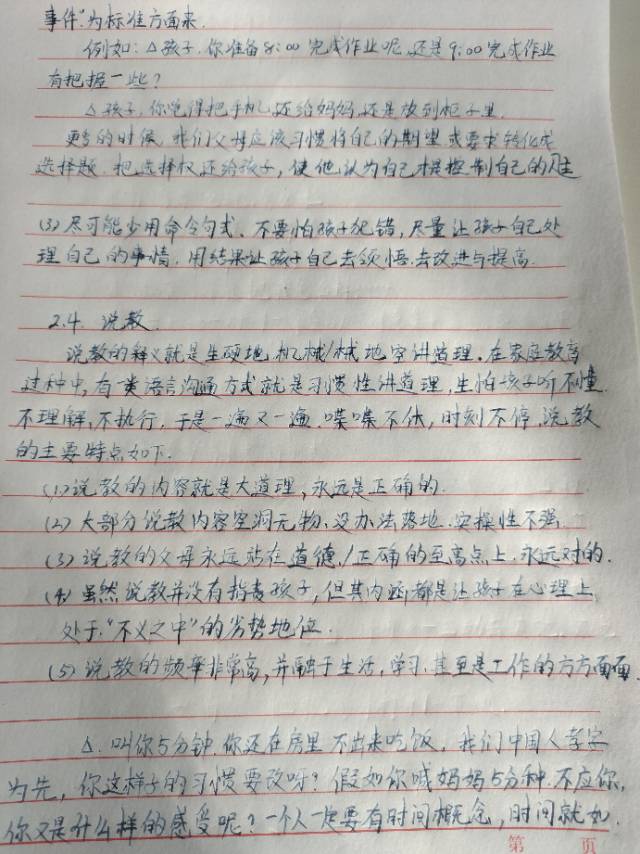 事件"为标准方面来.
例如: △孩子.你准备8:00完成作业呢,还是9:00完成作业
有把握一些?
△孩子,你觉得把手机还给妈妈,还是放到柜子里.
更多的时候,我们父母应该习惯将自己的期望或要求转化成
选择题,把选择权还给孩子,使他认为自己才是控制自己的
(3)尽可能少用命令句式.不要怕孩子犯错,尽量让孩子自己处
理自己的事情,用结果让孩子自己去领悟.去改进与提高.
2.4 说教.
说教的释义就是生硬地.机械/械地空讲道理.在家庭教育
过程中,有一类语言沟通方式就是习惯性讲道理,生怕孩子听不懂.
不理解,不执行,于是一遍又一遍.喋喋不休,时刻不停.说教
的主要特点如下.
(1)说教的内容就是大道理,永远是正确的.
(2)大部分说教内容空洞无物.没办法落地.实操性不强.
(3)说教的父母永远站在道德/正确的至高点上.永远对的.
(4)虽然说教并没有指责孩子,但其内涵都是让孩子在心理上
处于"不义之中"的劣势地位.
(5)说教的频率非常高,并融于生活,学习.甚至是工作的方方面面.
△.叫你5分钟.你还在房里不出来吃饭,我们中国人孝字
为先,你这样子的习惯要改呀?假如你喊妈妈5分种.不应你,
你又是什么样的感受呢?一个人一定要有时间概念,时间就如.
第 页